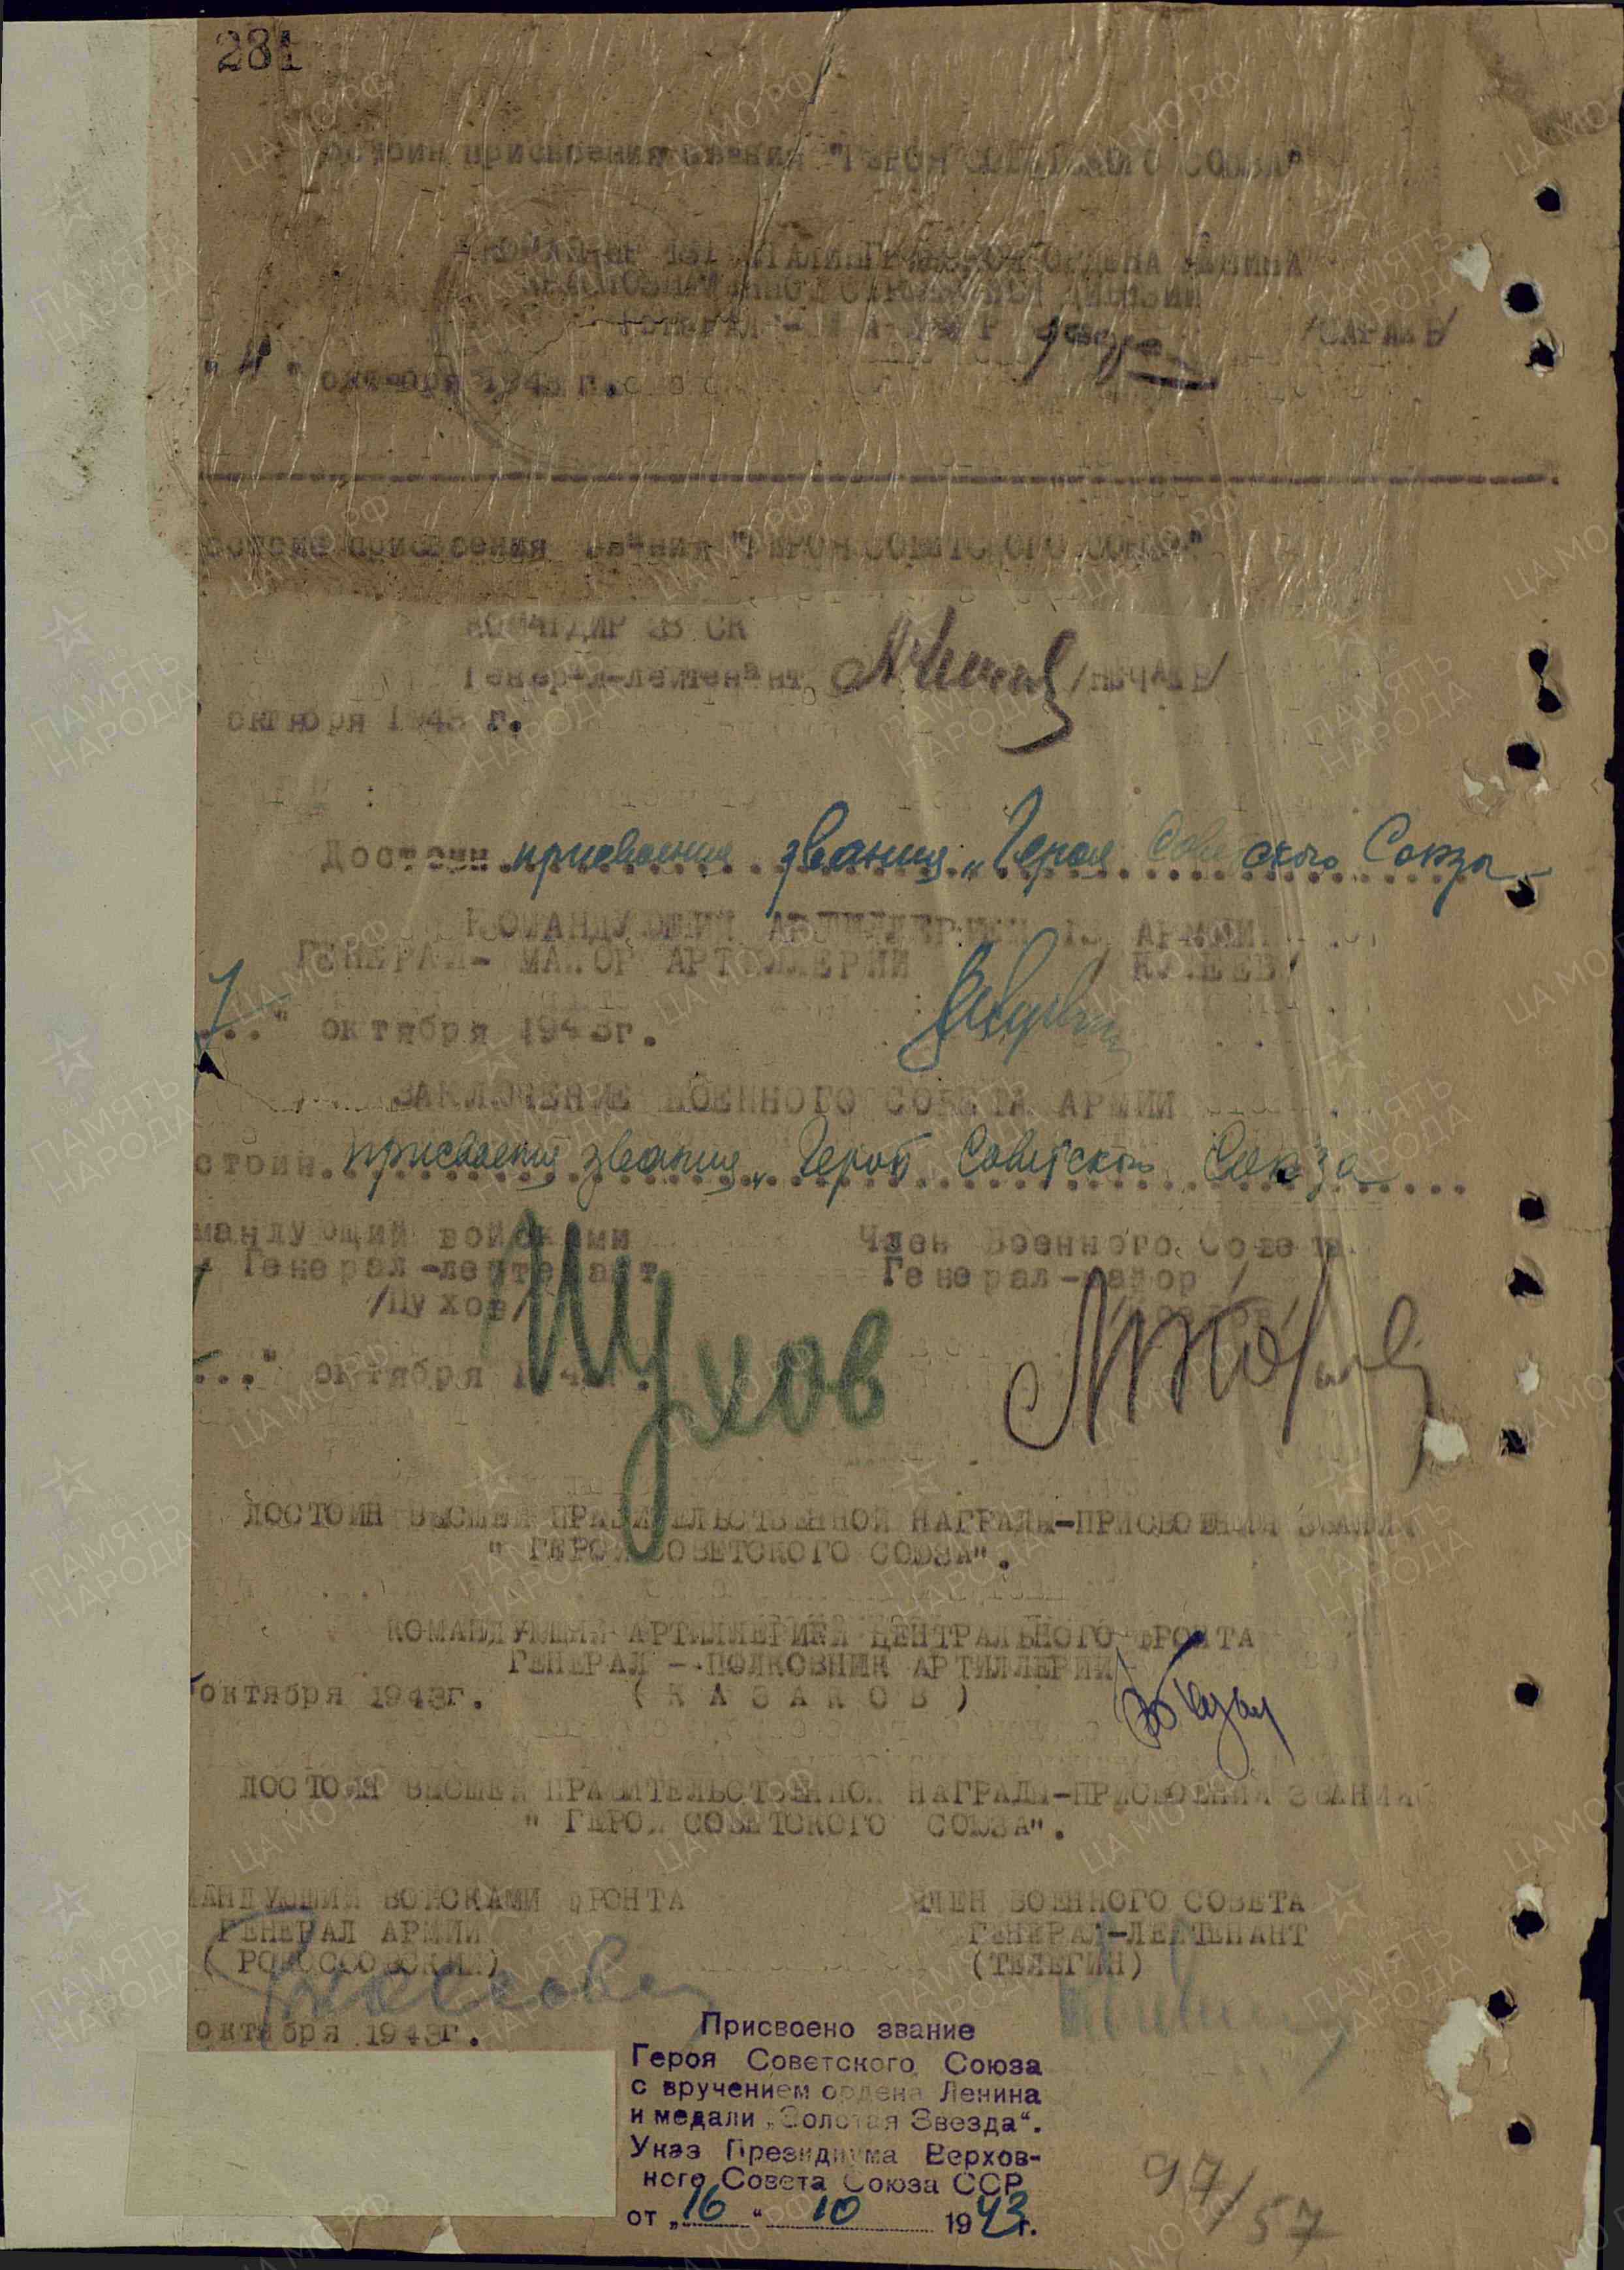 281
присвоения звания "ГЕРОЯ СОВЕТСКОГО СОЮЗА"
181 СТАЛИНГРАДСКОЙ ОРДЕНА ЛЕНИНА
КРАСНОЗНАМЕННОЙ СТРЕЛКОВОЙ ДИВИЗИИ
ГЕНЕРАЛ - М А Й О Р /САРАЕВ/
октября 1943 г.
присвоения звания "ГЕРОЯ СОВЕТСКОГО СОЮЗА"
КОМАНДИР 28 СК
Генерал-лейтенант /НЕЧАЕВ/
октября 1943 г.
Достоин присвоения звания „Героя Советского Союза
КОМАНДУЮЩИЙ АРТИЛЛЕРИЕЙ 13 АРМИИ
ГЕНЕРАЛ- МАЙОР АРТИЛЛЕРИИ
7 ..." октября 1943г.
ЗАКЛЮЧЕНИЕ ВОЕННОГО СОВЕТА АРМИИ
стоин присвоения звания „Герой Советского Союза
мандующий войсками Член Военного Совета
Генерал-лейтенант Генерал-майор
/Пухов/ /Козлов/
Пухов
..." октября 194
ДОСТОИН ВЫСШЕЙ ПРАВИТЕЛЬСТВЕННОЙ НАГРАДЫ-ПРИСВОЕНИЯ ЗВАНИЯ
" ГЕРОЯ СОВЕТСКОГО СОЮЗА".
КОМАНДУЮЩИЙ АРТИЛЛЕРИЕЙ ЦЕНТРАЛЬНОГО ФРОНТА
ГЕНЕРАЛ - ПОЛКОВНИК АРТИЛЛЕРИИ
октября 1943г. ( К А З А К О В )
ДОСТОИН ВЫСШЕЙ ПРАВИТЕЛЬСТВЕННОЙ НАГРАДЫ-ПРИСВОЕНИЯ ЗВАНИЯ
" ГЕРОЯ СОВЕТСКОГО СОЮЗА".
МАНДУЮЩИЙ ВОЙСКАМИ ФРОНТА ЧЛЕН ВОЕННОГО СОВЕТА
ГЕНЕРАЛ АРМИИ ГЕНЕРАЛ-ЛЕЙТЕНАНТ
( РОКОССОВСКИЙ) (ТЕЛЕГИН)
октября 1943г.
Присвоено звание
Героя Советского Союза
с вручением ордена Ленина
и медали „Золотая Звезда“.
Указ Президиума Верхов-
ного Совета Союза ССР
от „16“ 10 1943г.
97/57